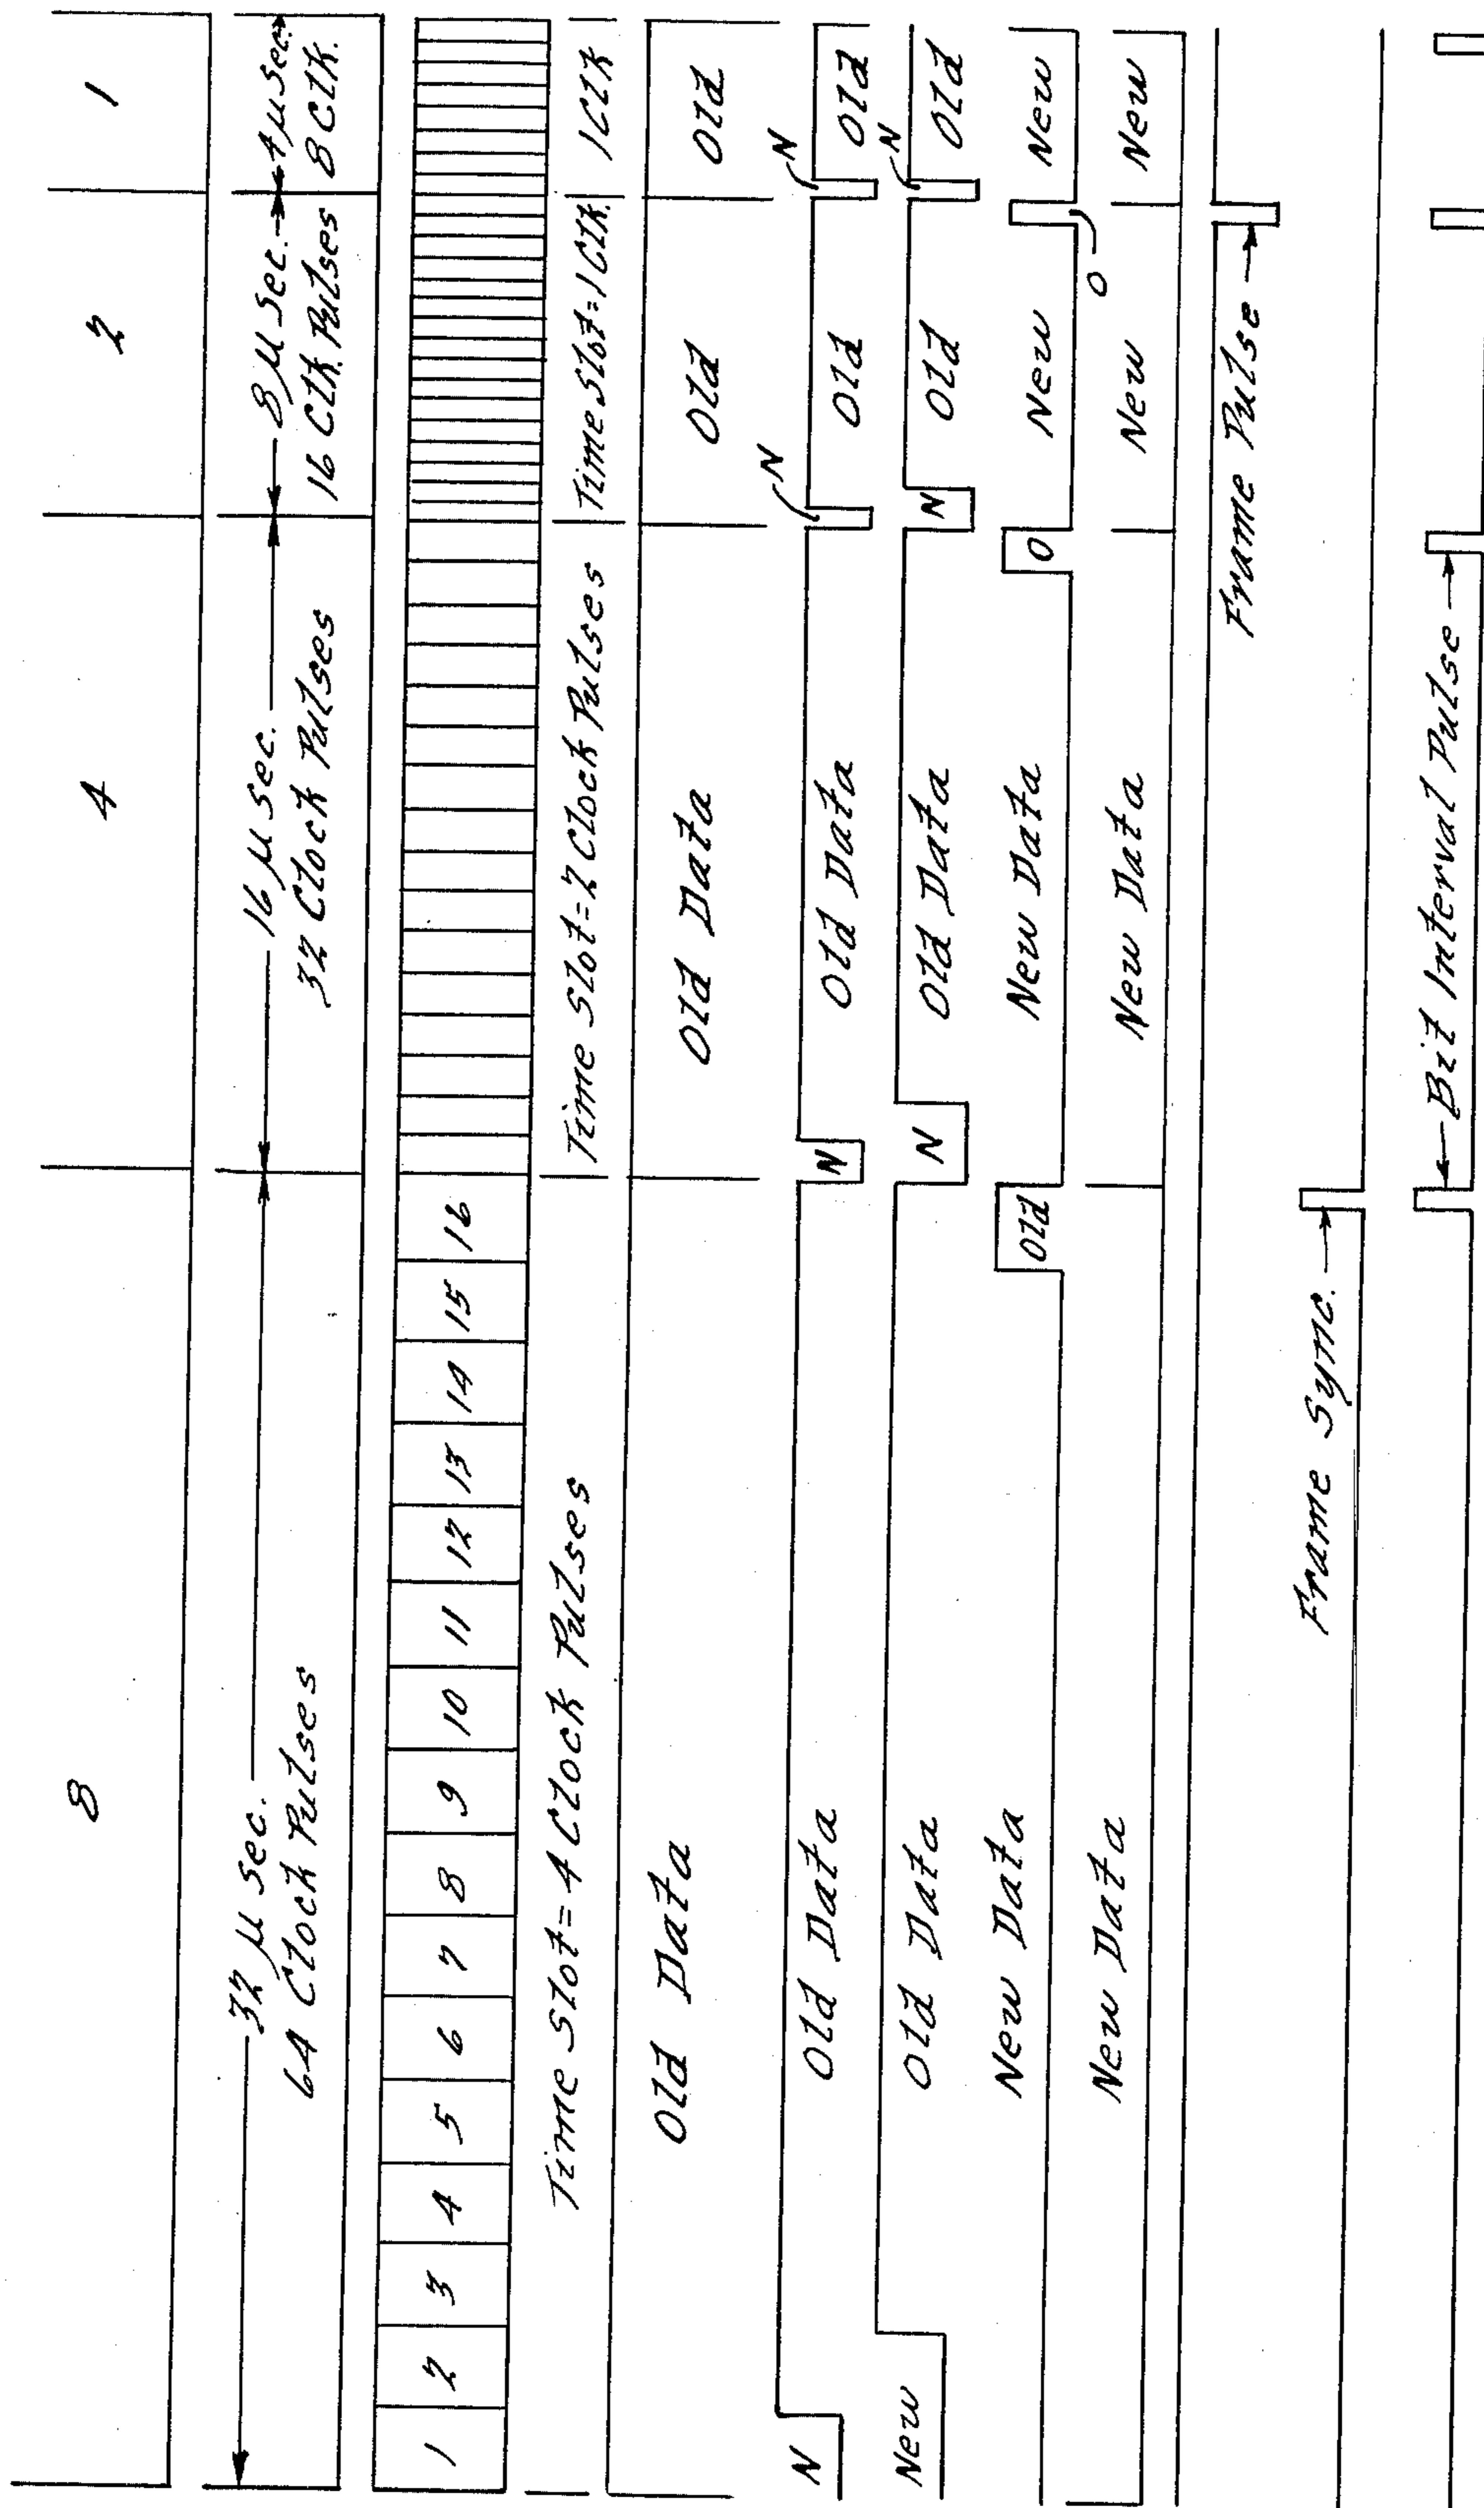 8 4 2 1
32 μ sec. 16 μ sec. 8 μ sec. 4 μ sec.
64 Clock Pulses 32 Clock Pulses 16 Clk. Pulses 8 Clk.
1 2 3 4 5 6 7 8 9 10 11 12 13 14 15 16
Time Slot=4 Clock Pulses Time Slot=2 Clock Pulses Time Slot=1 Clk. 1 Clk
Old Data Old Data Old Old
N Old Data N Old Data N Old N Old
New Old Data N Old Data N Old N Old
New Data Old New Data O New O New
New Data New Data New New
Frame Pulse
Frame Sync.
Bit Interval Pulse